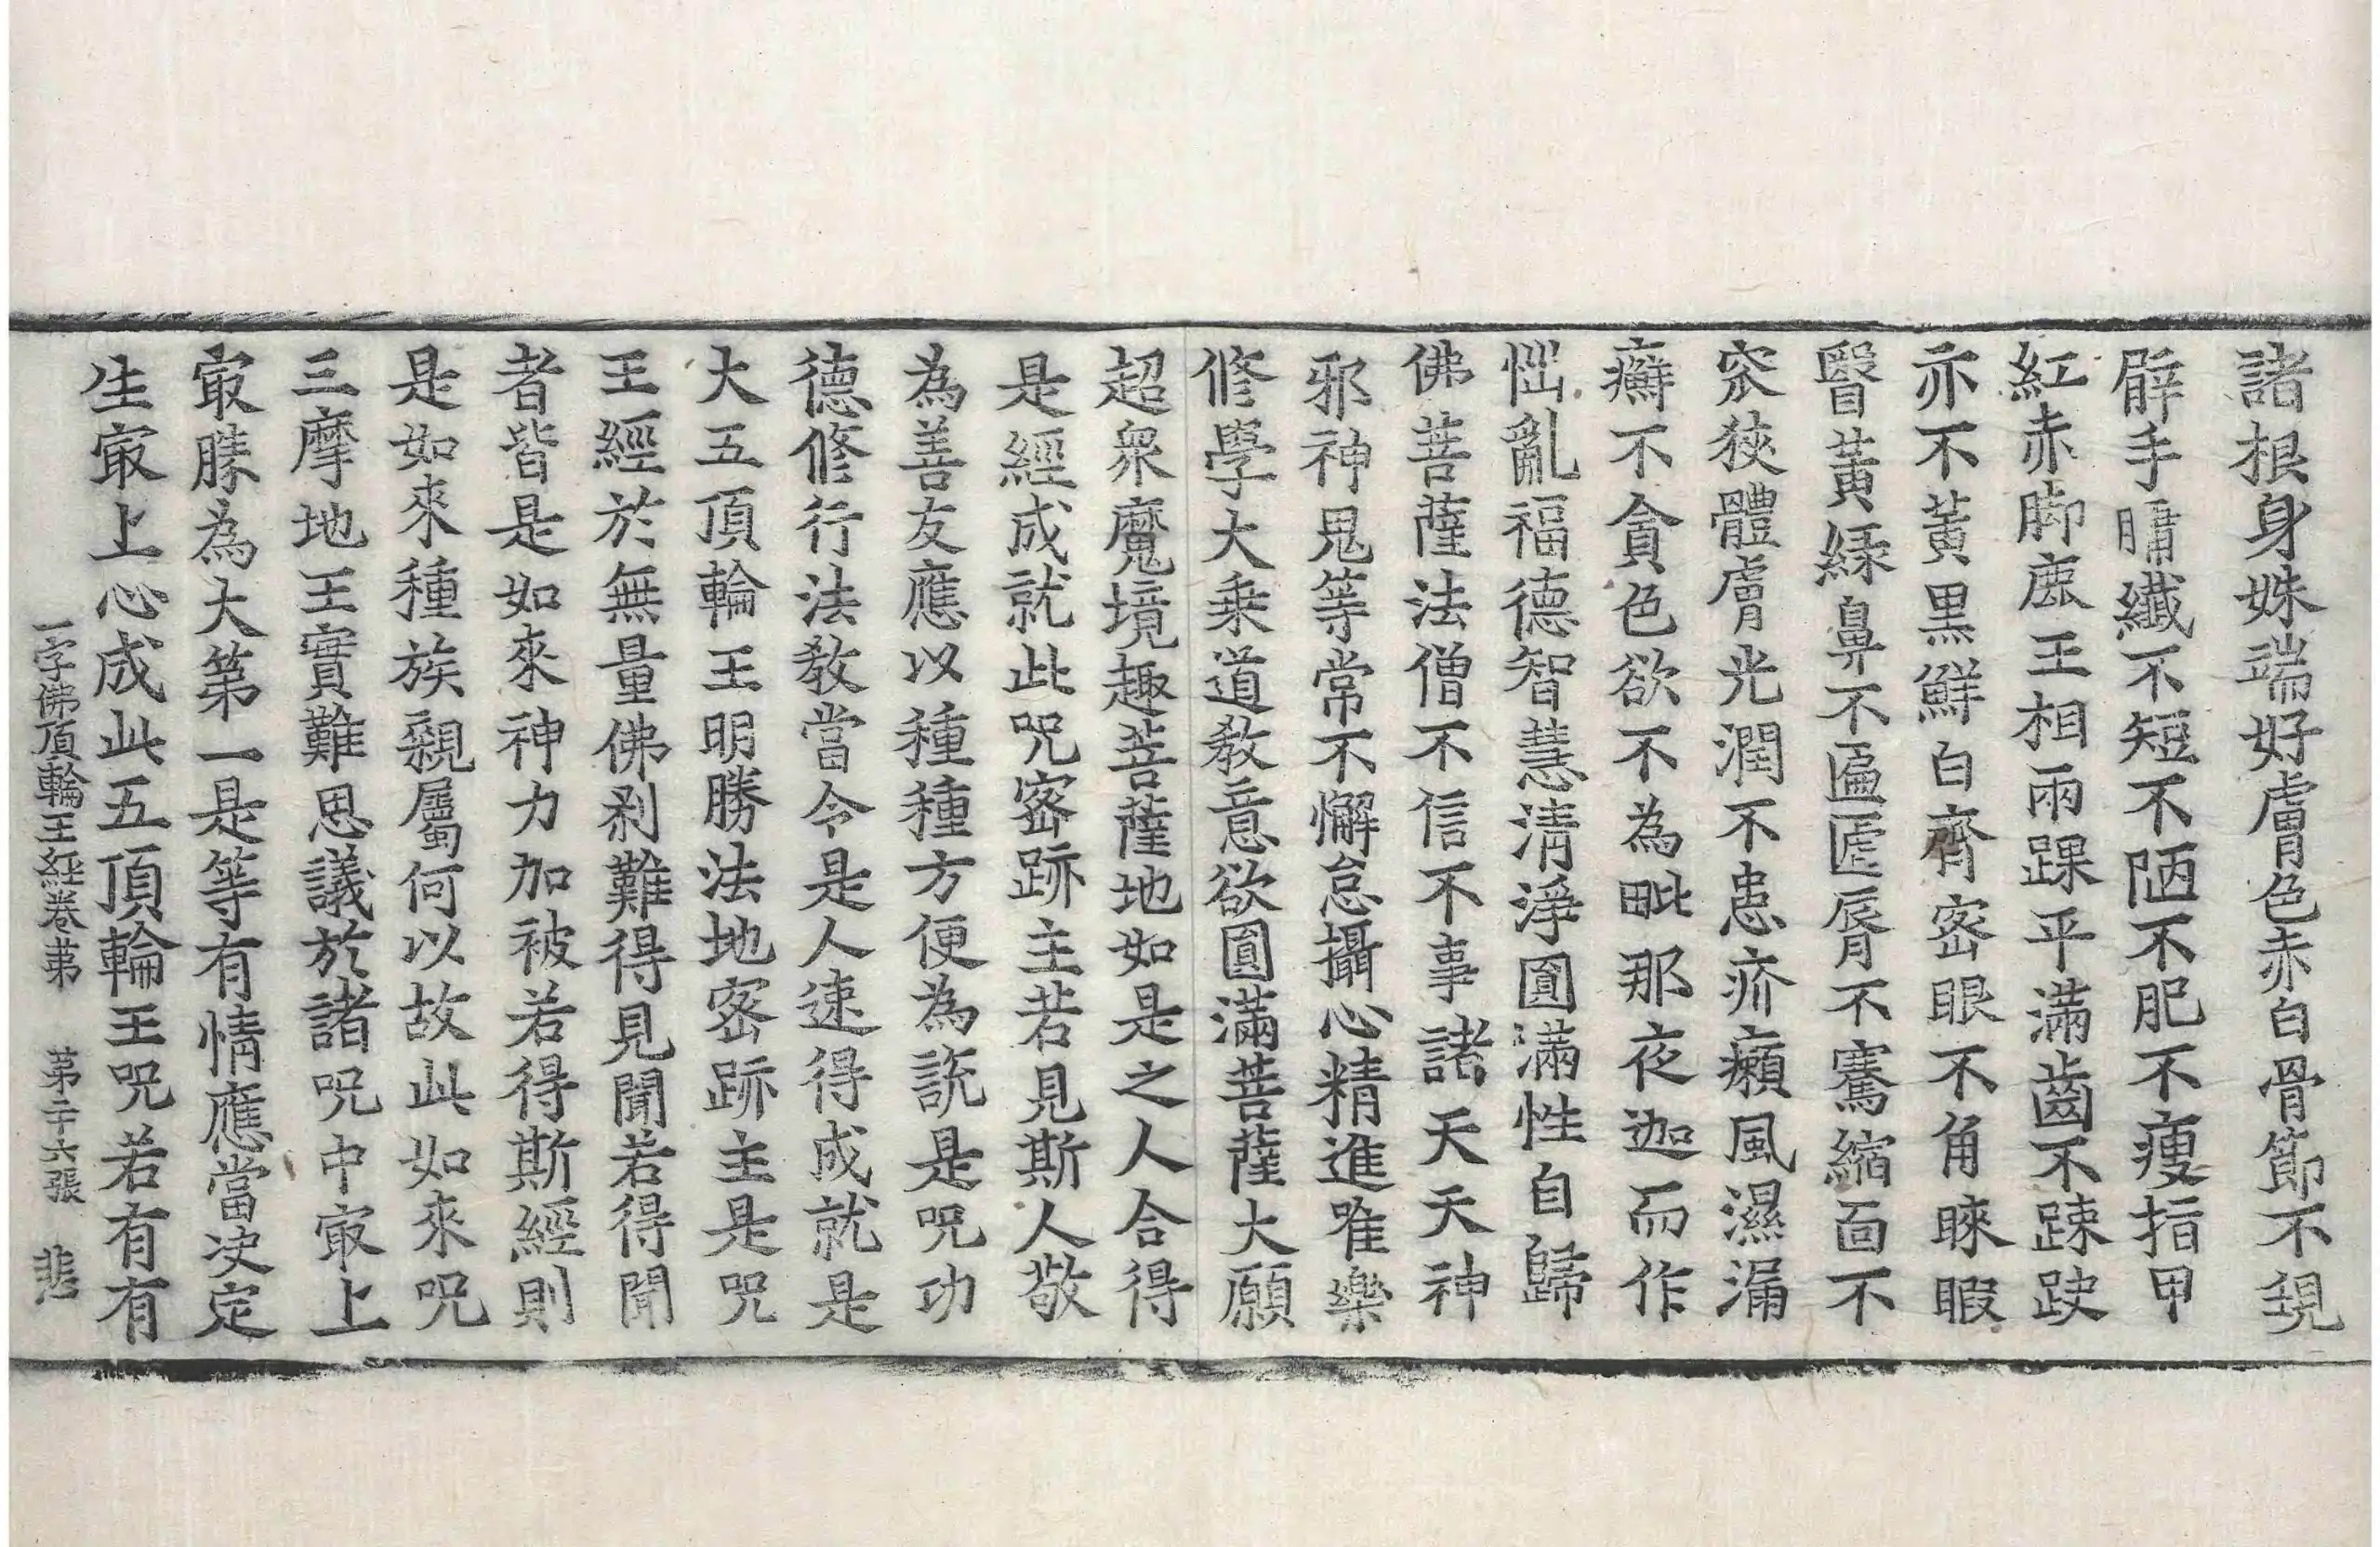 諸根身姝端好膚色赤白骨節不現
臂手𦟛纖不短不陋不肥不瘦指甲
紅赤脚鹿王相兩踝平滿齒不踈缺
亦不黃黑鮮白齊密眼不角睞睱
瞖黃緑鼻不匾㔸脣不騫縮面不
窊狹體膚光潤不患疥癩風濕漏
癬不貪色欲不為毗那夜迦而作
惱亂福德智慧清淨圓滿性自歸
佛菩薩法僧不信不事諸天天神
邪神鬼等常不懈怠攝心精進唯樂
修學大乘道教意欲圓滿菩薩大願
超衆魔境趣菩薩地如是之人合得
是經成就此呪密跡主若見斯人敬
為善友應以種種方便為說是呪功
德修行法教當令是人速得成就是
大五頂輪王明勝法地密跡主是呪
王經於無量佛刹難得見聞若得聞
者皆是如來神力加被若得斯經則
是如來種族親屬何以故此如來呪
三摩地王實難思議於諸呪中冣上
冣勝為大第一是等有情應當決定
生冣上心成此五頂輪王呪若有有
一字佛頂輪王経卷苐 苐二十六張 悲